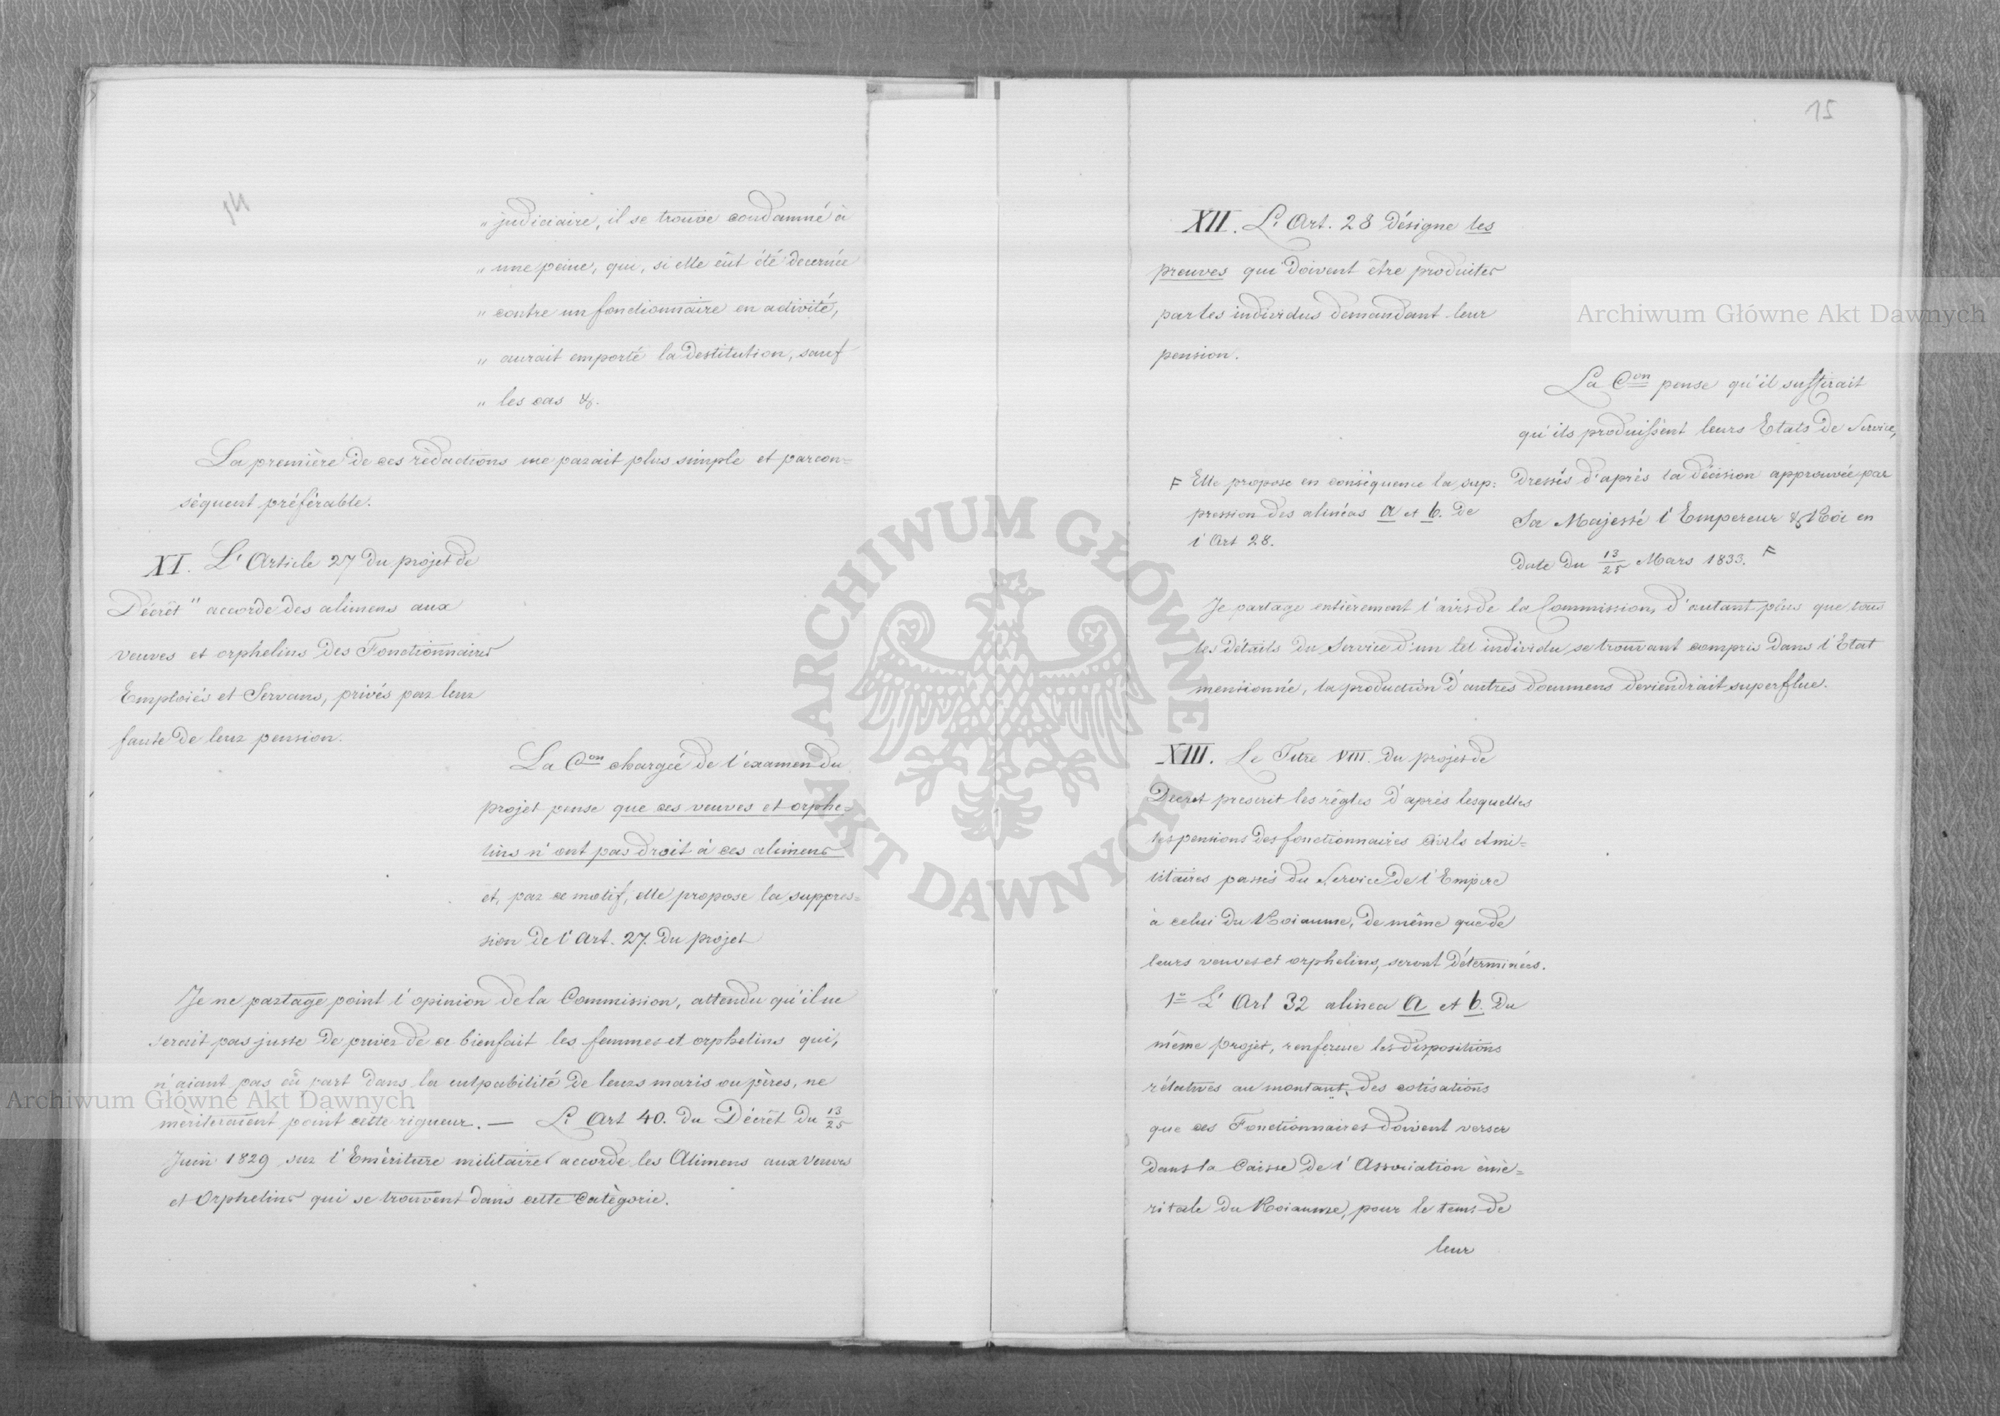 14
„ judiciaire, il se trouve condamné à
„ une peine, qui, si elle eût été décernée
„ contre un fonctionnaire en activité,
„ aurait emporté la destitution, sauf
„ les cas &.
La première de ces rédactions me parait plus simple et parcon=
séquent préférable.
XI. L'Article 27 du projet de
Décrêt" accorde des alimens aux
veuves et orphelins des Fonctionnaires
Emploiés et Servans, privés par leur
faute de leur pension.
La Con chargée de l'examen du
projet pense que ces veuves et orphe=
lins n'ont pas droit à ces alimens
et, par ce motif, elle propose la suppres=
sion de l'Art. 27. du projet
Je ne partage point l'opinion de la Commission, attendu qu'il ne
serait pas juste de priver de ce bienfait les femmes et orphelins qui,
n'aiant pas eû part dans la culpabilité de leurs maris ou pères, ne
mériteraient point cette rigueur. — L'Art 40. du Décrêt du 13/25
Juin 1829 sur l'Emériture militaire accorde les Alimens aux Veuves
et Orphelins qui se trouvent dans cette catégorie.
15
XII. L'Art. 28 désigne les
preuves qui doivent être produites
par les individus demandant leur
pension.
La Con pense qu'il suffirait
qu'ils produissent leurs Etats de Service,
dressés d'après la décision approuvée par
Sa Majessé l'Empereur & Roi en
date du 13/25 Mars 1833. F
F Elle propose en conséquence la sup=
pression des alinéas a et b. de
l'Art 28.
Je partage entièrement l'avis de la Commission, d'autant plus que tous
les détails du Service d'un tel individu se trouvant compris dans l'Etat
mentionné, la production d'autres documens deviendrait superflue.
XIII. Le Titre VIII. du projet de
Decret prescrit les règles d'après lesquelles
les pensions des fonctionnaires civils et mi=
litaires passés du Service de l'Empire
à celui du Roiaume, de même que de
leurs veuves et orphelins, seront déterminées.
1o L'Art 32 alinea a et b. du
même projet, renferme les dispositions
rélatives au montant des cotisations
que ces Fonctionnaires doivent verser
dans la Caisse de l'Association émé=
ritale du Roiaume, pour le tems de
leur
Archiwum Główne Akt Dawnych
Archiwum Główne Akt Dawnych
ARCHIWUM GŁÓWNE
AKT DAWNYCH